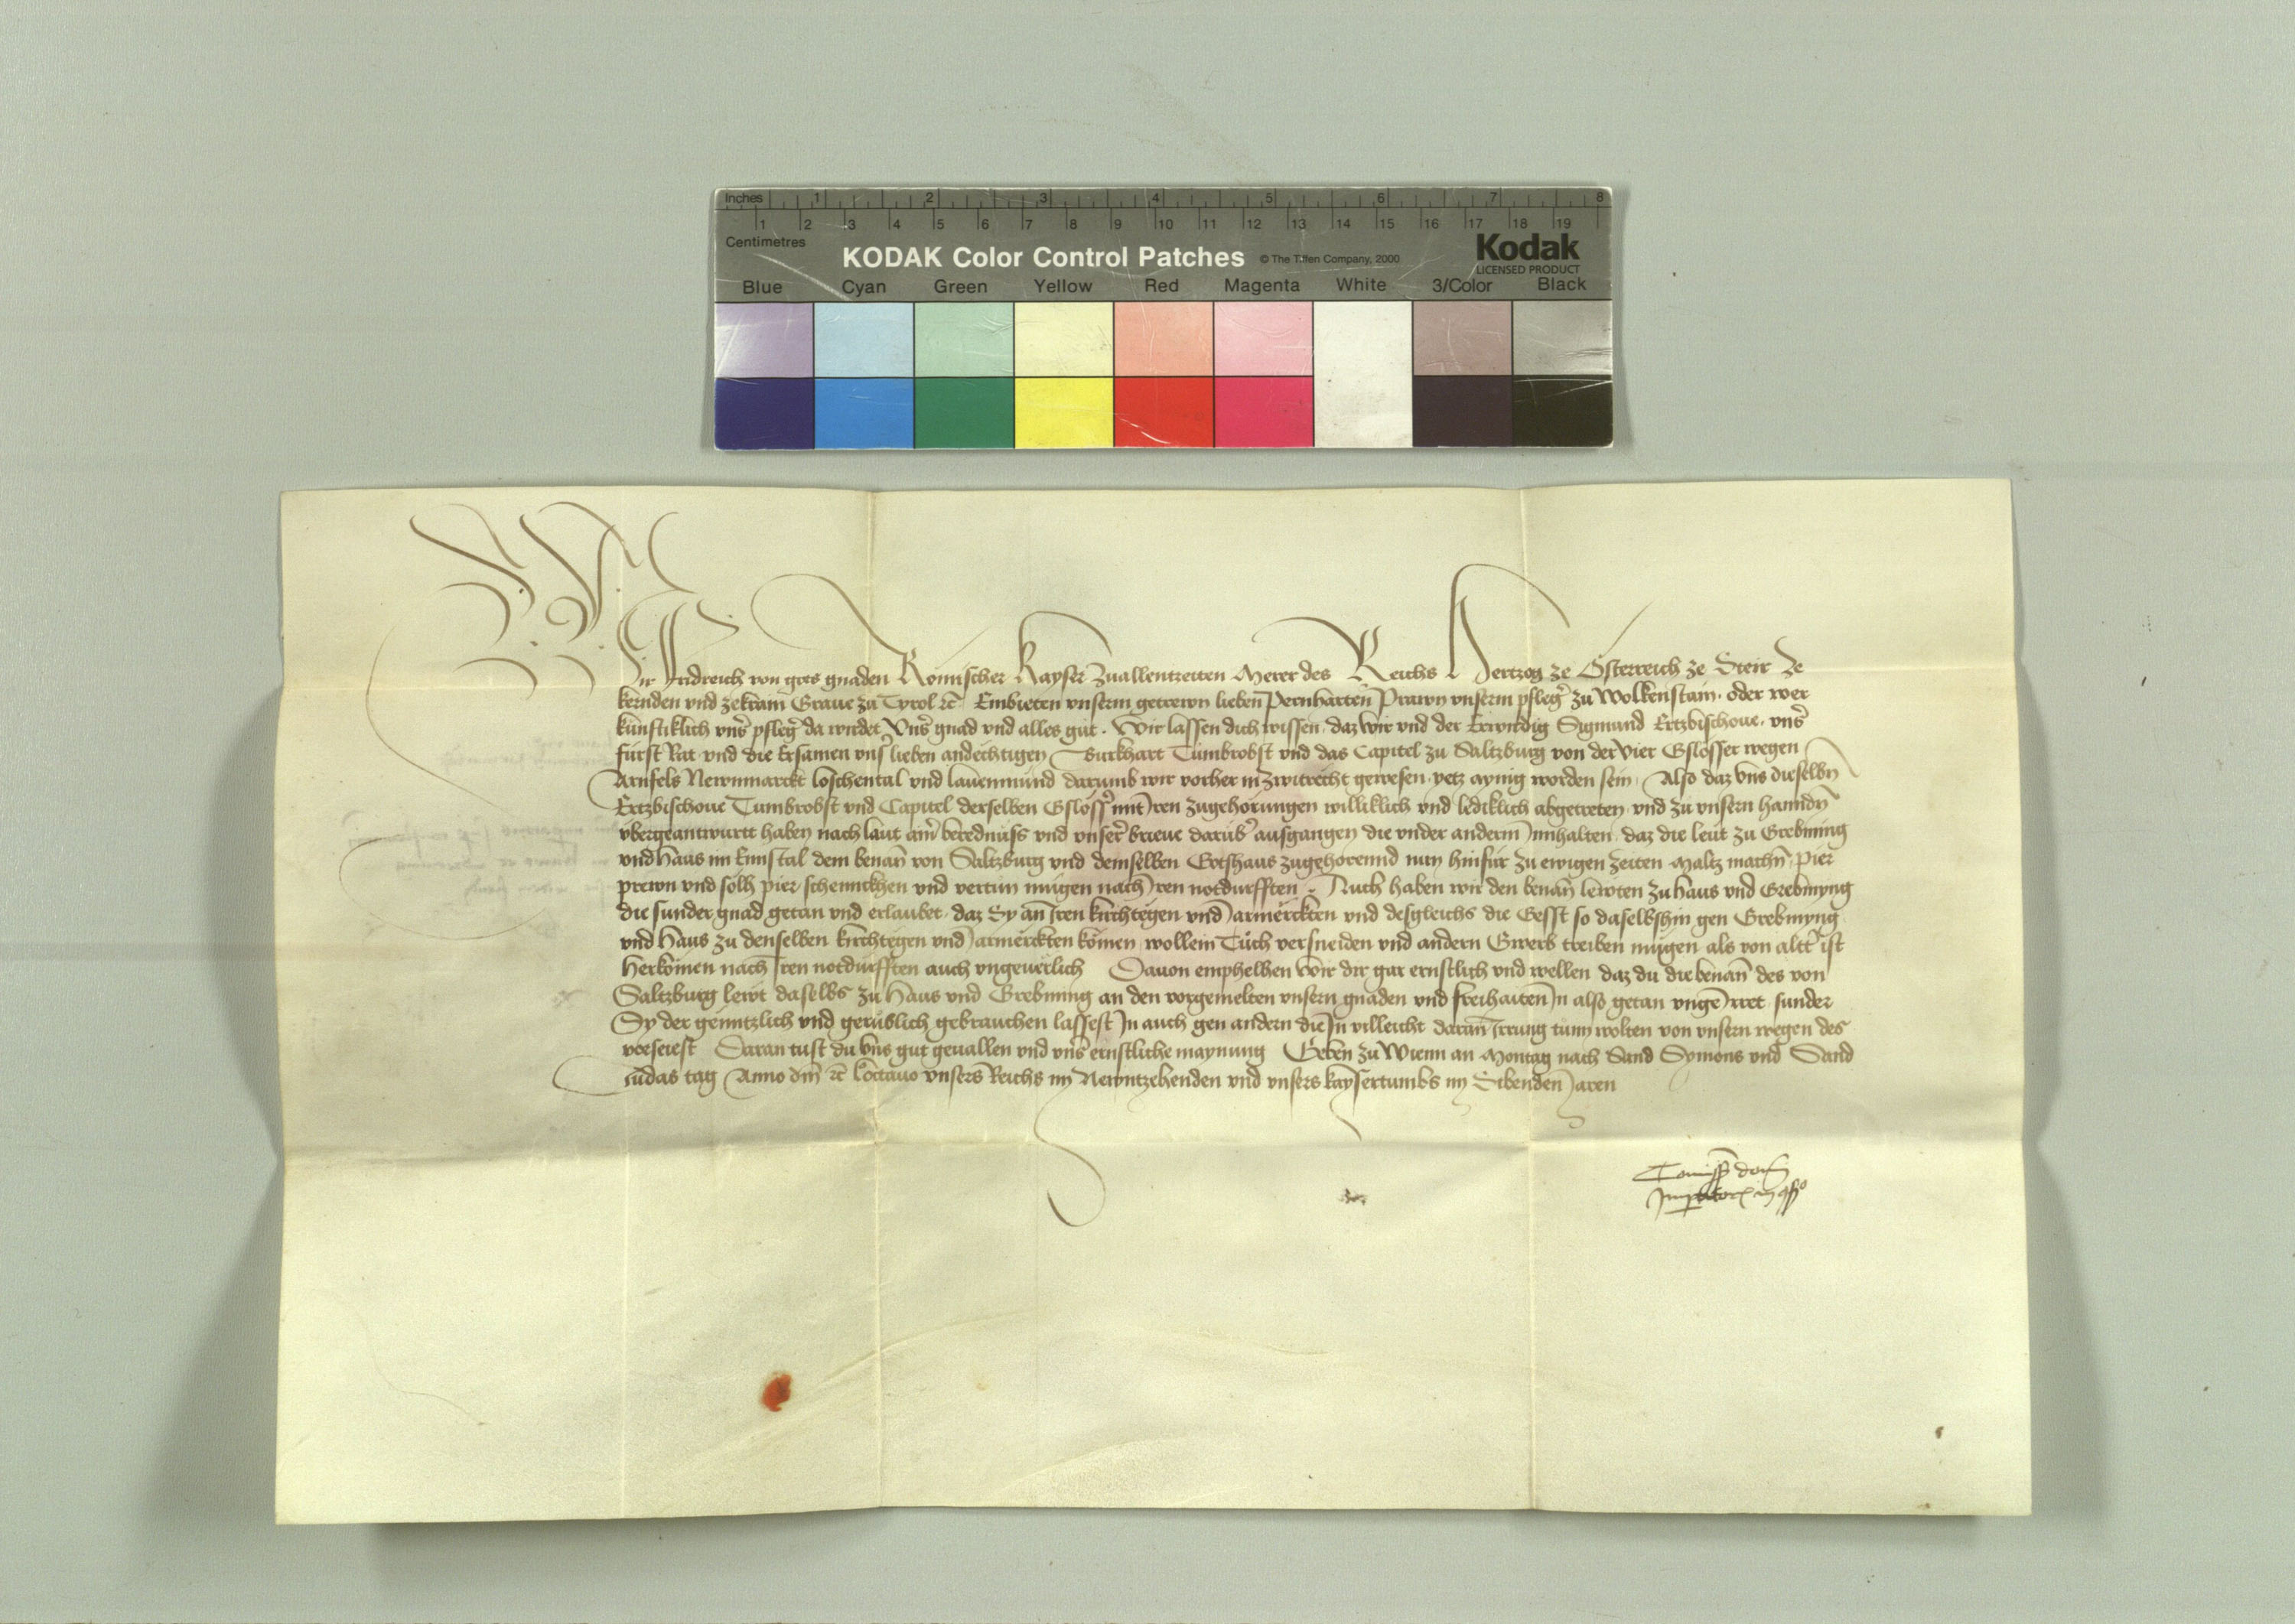 Inches 1 2 3 4 5 6 7 8
1 2 3 4 5 6 7 8 9 10 11 12 13 14 15 16 17 18 19
Centimetres
KODAK Color Control Patches © The Tiffen Company, 2000 Kodak
LICENSED PRODUCT
Blue Cyan Green Yellow Red Magenta White 3/Color Black
Wir Fridreich von gots gnaden Römischer Kayser zuallentzeiten Merer des Reichs Hertzog ze Österreich ze Steir ze
kernden vnd ze krain Graue zu Tyrol ꝛc̄ Embieten vnserm getrewn lieben Pernharten Prawn vnserm pfleg̉ zu Wolkenstain. oder wer
künftiklich vns̉ pfleg̉ da wirdet Vns̉ gnad vnd alles gut. Wir lassen dich wissen, daz wir vnd der Erwirdig Sigmund Ertzbischoue, vns̉
fürst Rat vnd die Ersamen vns̉ lieben andechtigen Burkhart Tumbrobst vnd das Capitel zu Saltzburg von der Vier Gslösser wegen
Arnfels Newnmarckt loschental vnd lauenmund darumb wir vorher in zwitrecht gewesen, yetz aynig worden sein. Also daz vns dieselbn̄
Ertzbischoue Tumbrobst vnd Capitel derselben Gslöss̉ mit Iren zugehorungen williklich vnd lediklich abgetreten vnd zu vnsern hanndn̄
vbergeantwurtt haben nach laut ains̉ berednüss vnd vnser̉ brieue darüb̉ ausgangen die vnder anderm Innhalten, daz die leut zu Grebming
vnd Haus im Ennstal dem benan̄ von Saltzburg vnd demselben Gotshaus zugehörennd nun hinfür zu ewigen zeiten Maltz machn̄, Pier
prewn vnd solh pier, schennckhen vnd vertün mügen nach Iren notdurfften. Auch haben wir den benan̄ lewten zu Haus vnd Grebmyng
die sunder, gnad, getan vnd erlaubet, daz Sy an Iren kirchtegen vnd Jarmerckten vnd desgleichs die Gesst so daselbshin gen Grebmyng
vnd Haus zu denselben kirchtegen vnd Jarmerckten kömen, wollein Tuch versneiden vnd andern Gwerb treiben mügen als von altt̉ ist
herkömen nach Iren notdurfften auch vngeuerlich Dauon emphelhen wir dir gar ernstlich vnd wellen daz du die benan̄ des von
Saltzburg lewt daselbs zu Haus vnd Grebming an den vorgemelten vnsern gnaden vnd freihaiten In also getan vngeirret, sunder
Sy der genntzlich vnd gerublich gebrauchen lassest In auch gen andern die In villeicht daran Irrung tunn wolten von vnsern wegen des
vorseiest Daran tust du vns gut geuallen vnd vns̉ ernstliche maynung Geben zu Wienn an Montag nach Sand Symons vnd Sand
Judas tag Anno dm̄ ꝛc̄ Loctauo vnsers Reichs im Newntzehenden vnd vnsers kaysertumbs im Sibenden Jaren